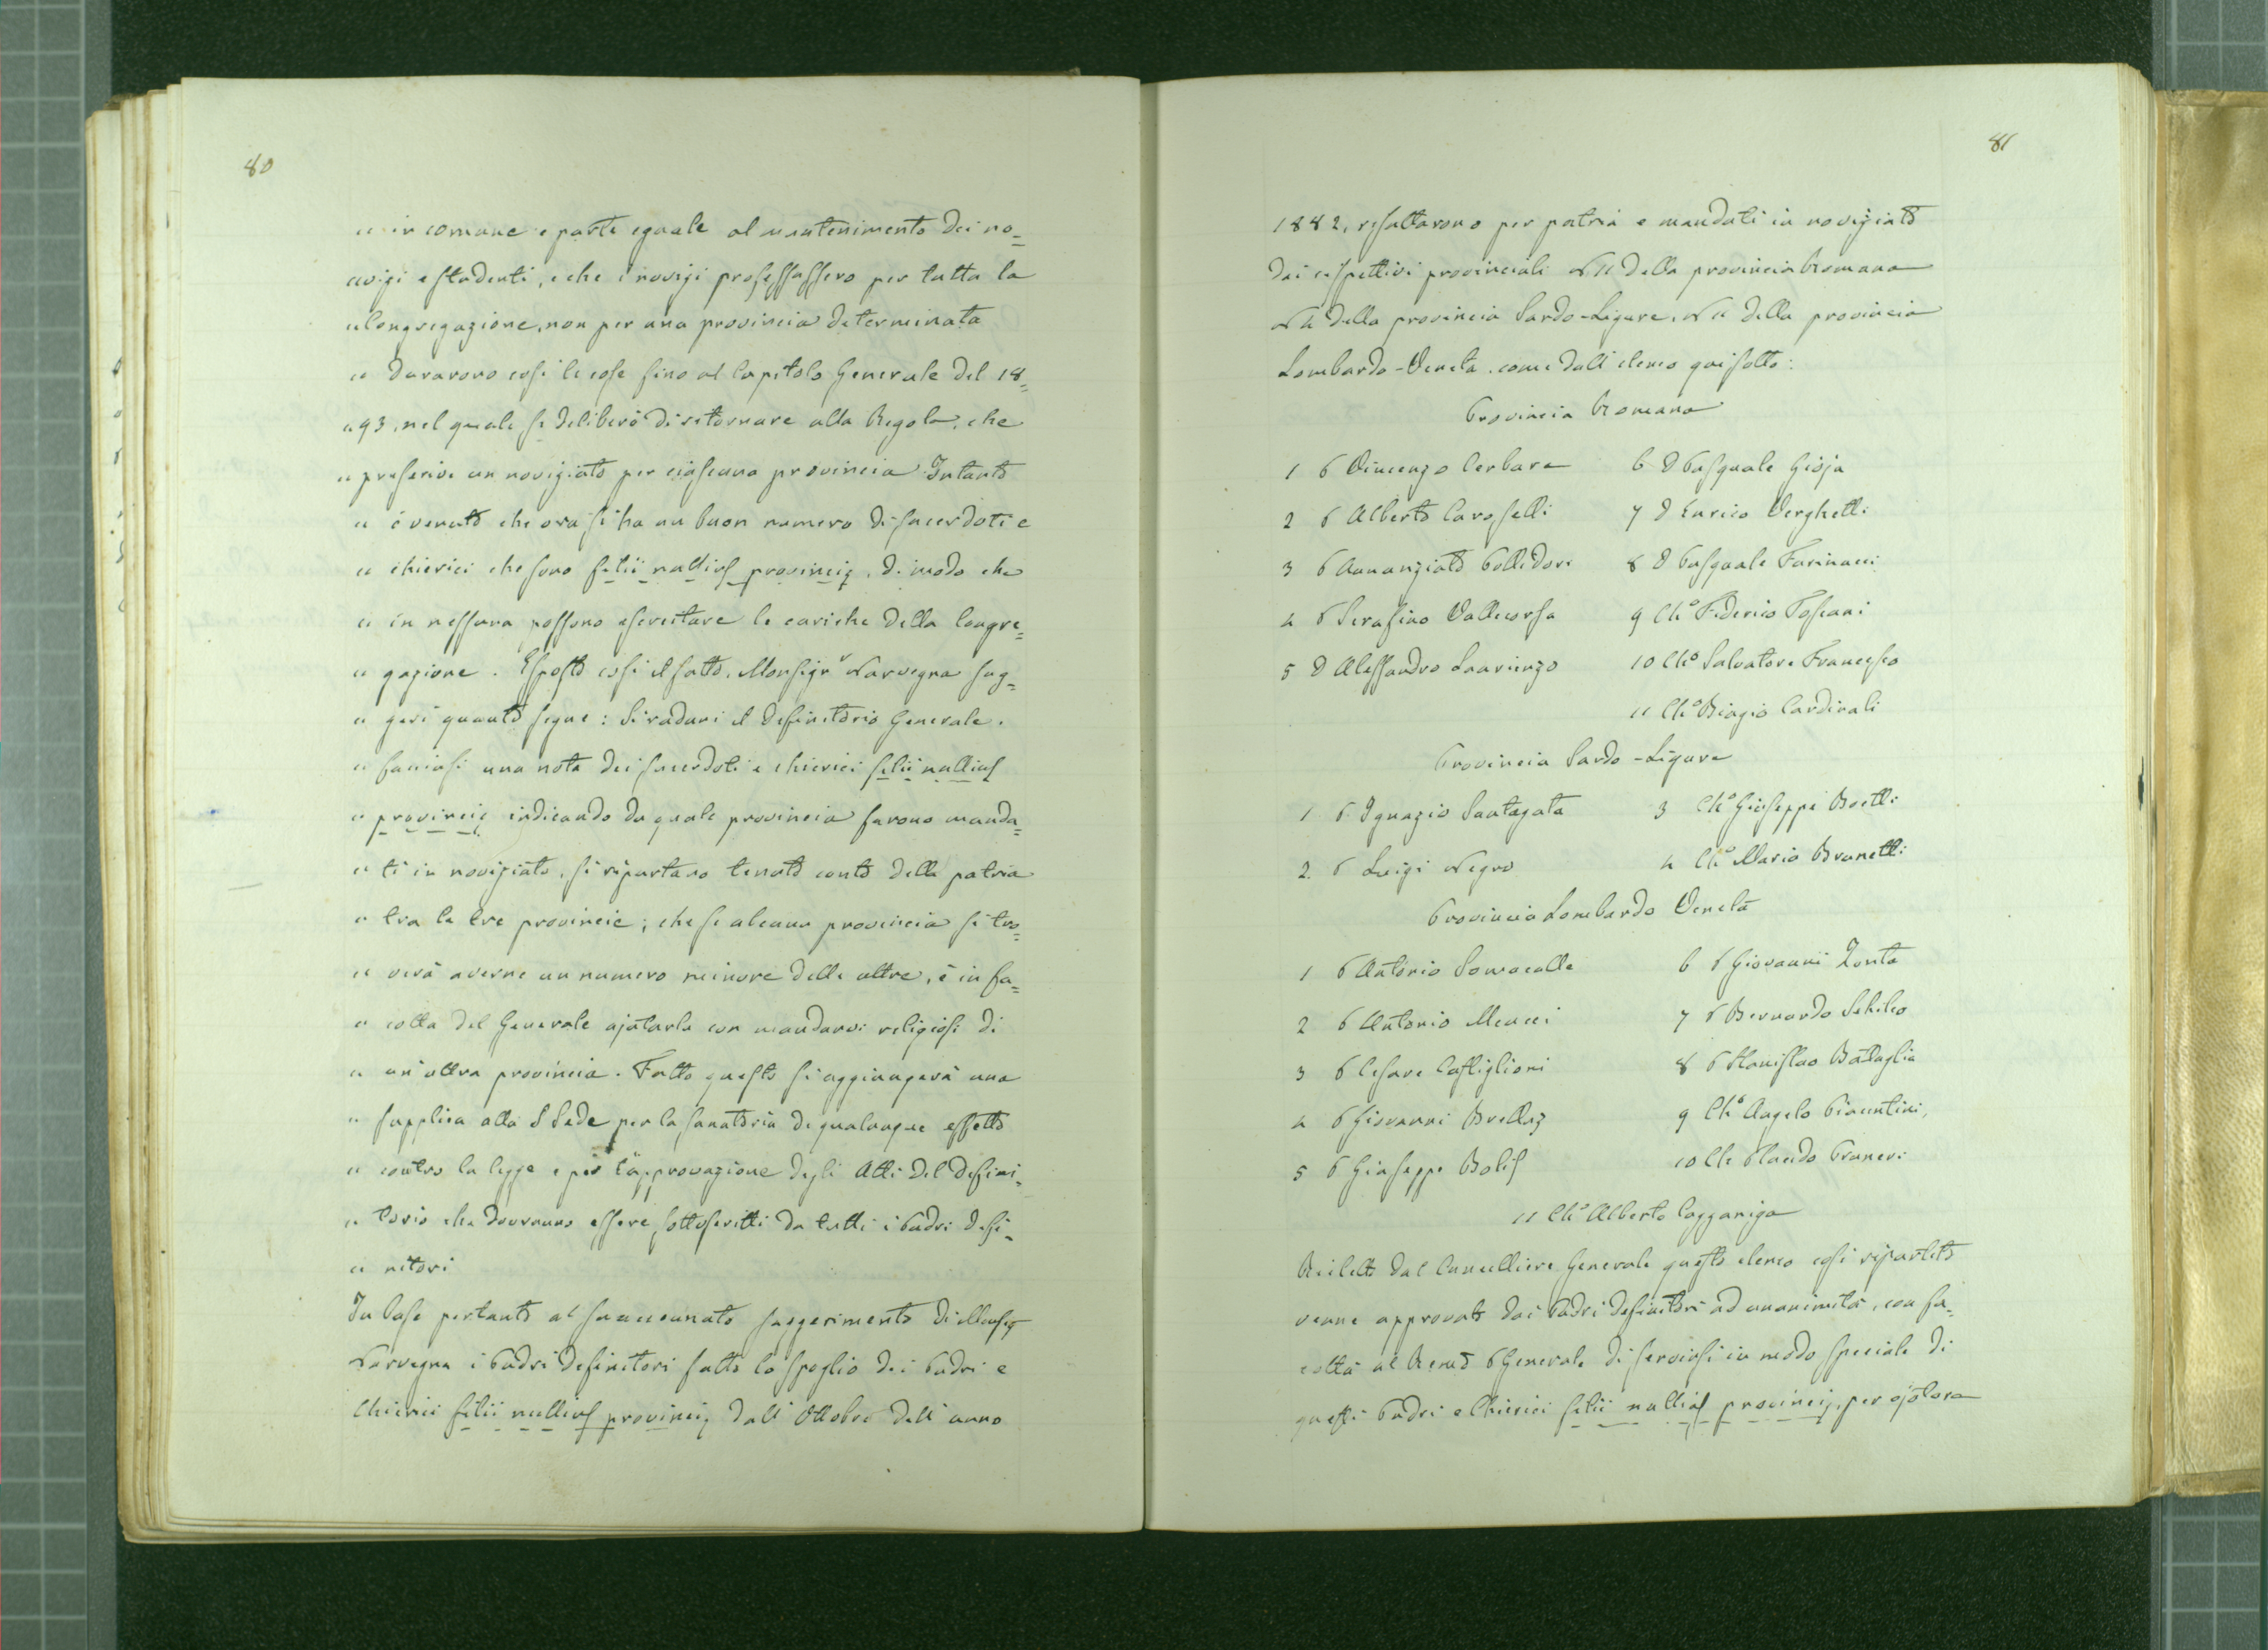 80
" in comune e parte eguale al mantenimento dei no=
" vizi e studenti, e che i novizi professassero per tutta la
" Congregazione, non per una provincia determinata
" Durarono così le cose fino al Capitolo Generale del 18=
" 93, nel quale si deliberò di ritornare alla Regola, che
" prescrive un noviziato per ciascuna provincia Intanto
" è venuto che ora si ha un buon numero di sacerdoti e
" chierici che sono filii nullius provincię, di modo che
" in nessuna possono esercitare le cariche della Congre=
" gazione. Esposto così il fatto, Monsigr Narvegna sug=
" gerì quanto segue: Si raduni il Definitorio Generale.
" facciasi una nota dei sacerdoti e chierici filii nullius
" provincię indicando da quale provincia furono manda=
" ti in noviziato, si ripartano tenuto conto della patria
" tra le tre provincie; che se alcuna provincia si tro=
" verà averne un numero minore delle altre, è in fa=
" coltà del Generale ajutarla con mandarvi religiosi di
" un'altra provincia. Fatto questo si aggiungerà una
" supplica alla S Sede per la sanatoria di qualunque effetto
" contro la legge e per l'approvazione degli Atti del Defini=
" torio che dovranno essere sottoscritti da tutti i Padri defi=
" nitori
In base pertanto al summentovato suggerimento di Monsig
Narvegna i Padri Definitori fatto lo spoglio dei Padri e
Chierici filii nullius provincię dall'Ottobre dell'anno
81
1882, risultarono per patria e mandati in noviziato
dai rispettivi provinciali N 11 della provincia Romana
N 4 della provincia Sardo-Ligure, N 11 della provincia
Lombardo-Veneta. come dall'elenco qui sotto:
Provincia Romana
1 P Vincenzo Cerbara 6 D Pasquale Gioja
2 P Alberto Caroselli 7 D Enrico Verghetti
3 P Annunziato Pollidori 8 D Pasquale Farinacci
4 P Serafino Vallecorsa 9 Cho Federico Toscani
5 D Alessandro Laurienzo 10 Cho Salvatore Francesco
11 Cho Biagio Cardinali
Provincia Sardo-Ligure
1 P. Ignazio Santagata 3 Cho Giuseppe Boetti
2. P Luigi Negro 4 Cho Mario Brunetti
Provincia Lombardo Veneta
1 P Antonio Somacalle 6 P Giovanni Zonta
2 P Antonio Meucci 7 P Bernardo Schileo
3 P Cesare Castiglioni 8 P Stanislao Battaglia
4 P Giovanni Brellaz 9 Cho Angelo Piacentini,
5 P Giuseppe Bolis 10 Ch Pruneri
11 Cho Alberto Cazzaniga
Riletto dal Cancelliere Generale questo elenco così ripartito
venne approvato dai Padri Definitori ad unanimità, con fa=
coltà al Remo P Generale di servirsi in modo speciale di
questi Padri e Chierici filii nullius provincię, per ajutare